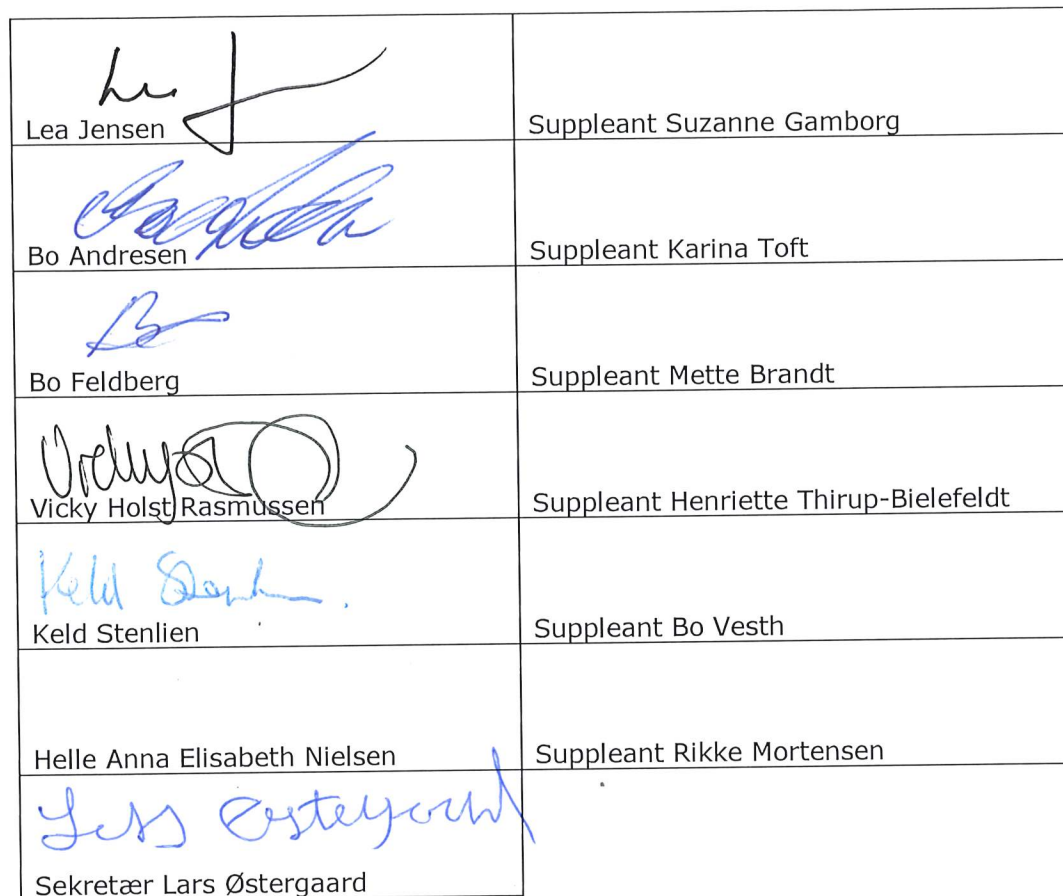 Lea Jensen
Suppleant Suzanne Gamborg
Bo Andresen
Suppleant Karina Toft
Bo
Bo Feldberg
Suppleant Mette Brandt
Vicky
Vicky Holst Rasmussen
Suppleant Henriette Thirup-Bielefeldt
Keld
Keld Stenlien
Suppleant Bo Vesth
Helle Anna Elisabeth Nielsen
Suppleant Rikke Mortensen
Lars Østergaard
Sekretær Lars Østergaard